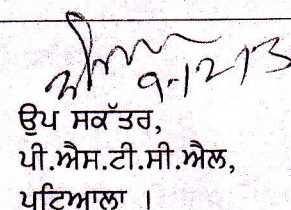 9-12-13
ਉਪ ਸਕੱਤਰ,
ਪੀ.ਐਸ.ਟੀ.ਸੀ.ਐਲ,
ਪਟਿਆਲਾ ।